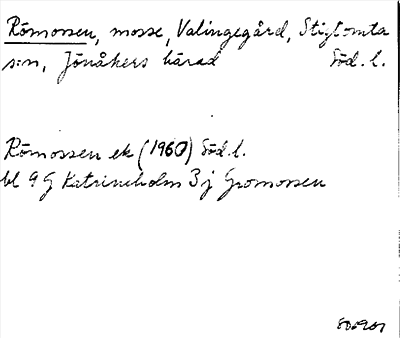 Römossen, mosse, Valingegård, Stigtomta
s:n, Jönåkers härad Söd. l.
Römossen ek (1960) Söd. l.
bl 9 G Katrineholm 3 j Gromossen